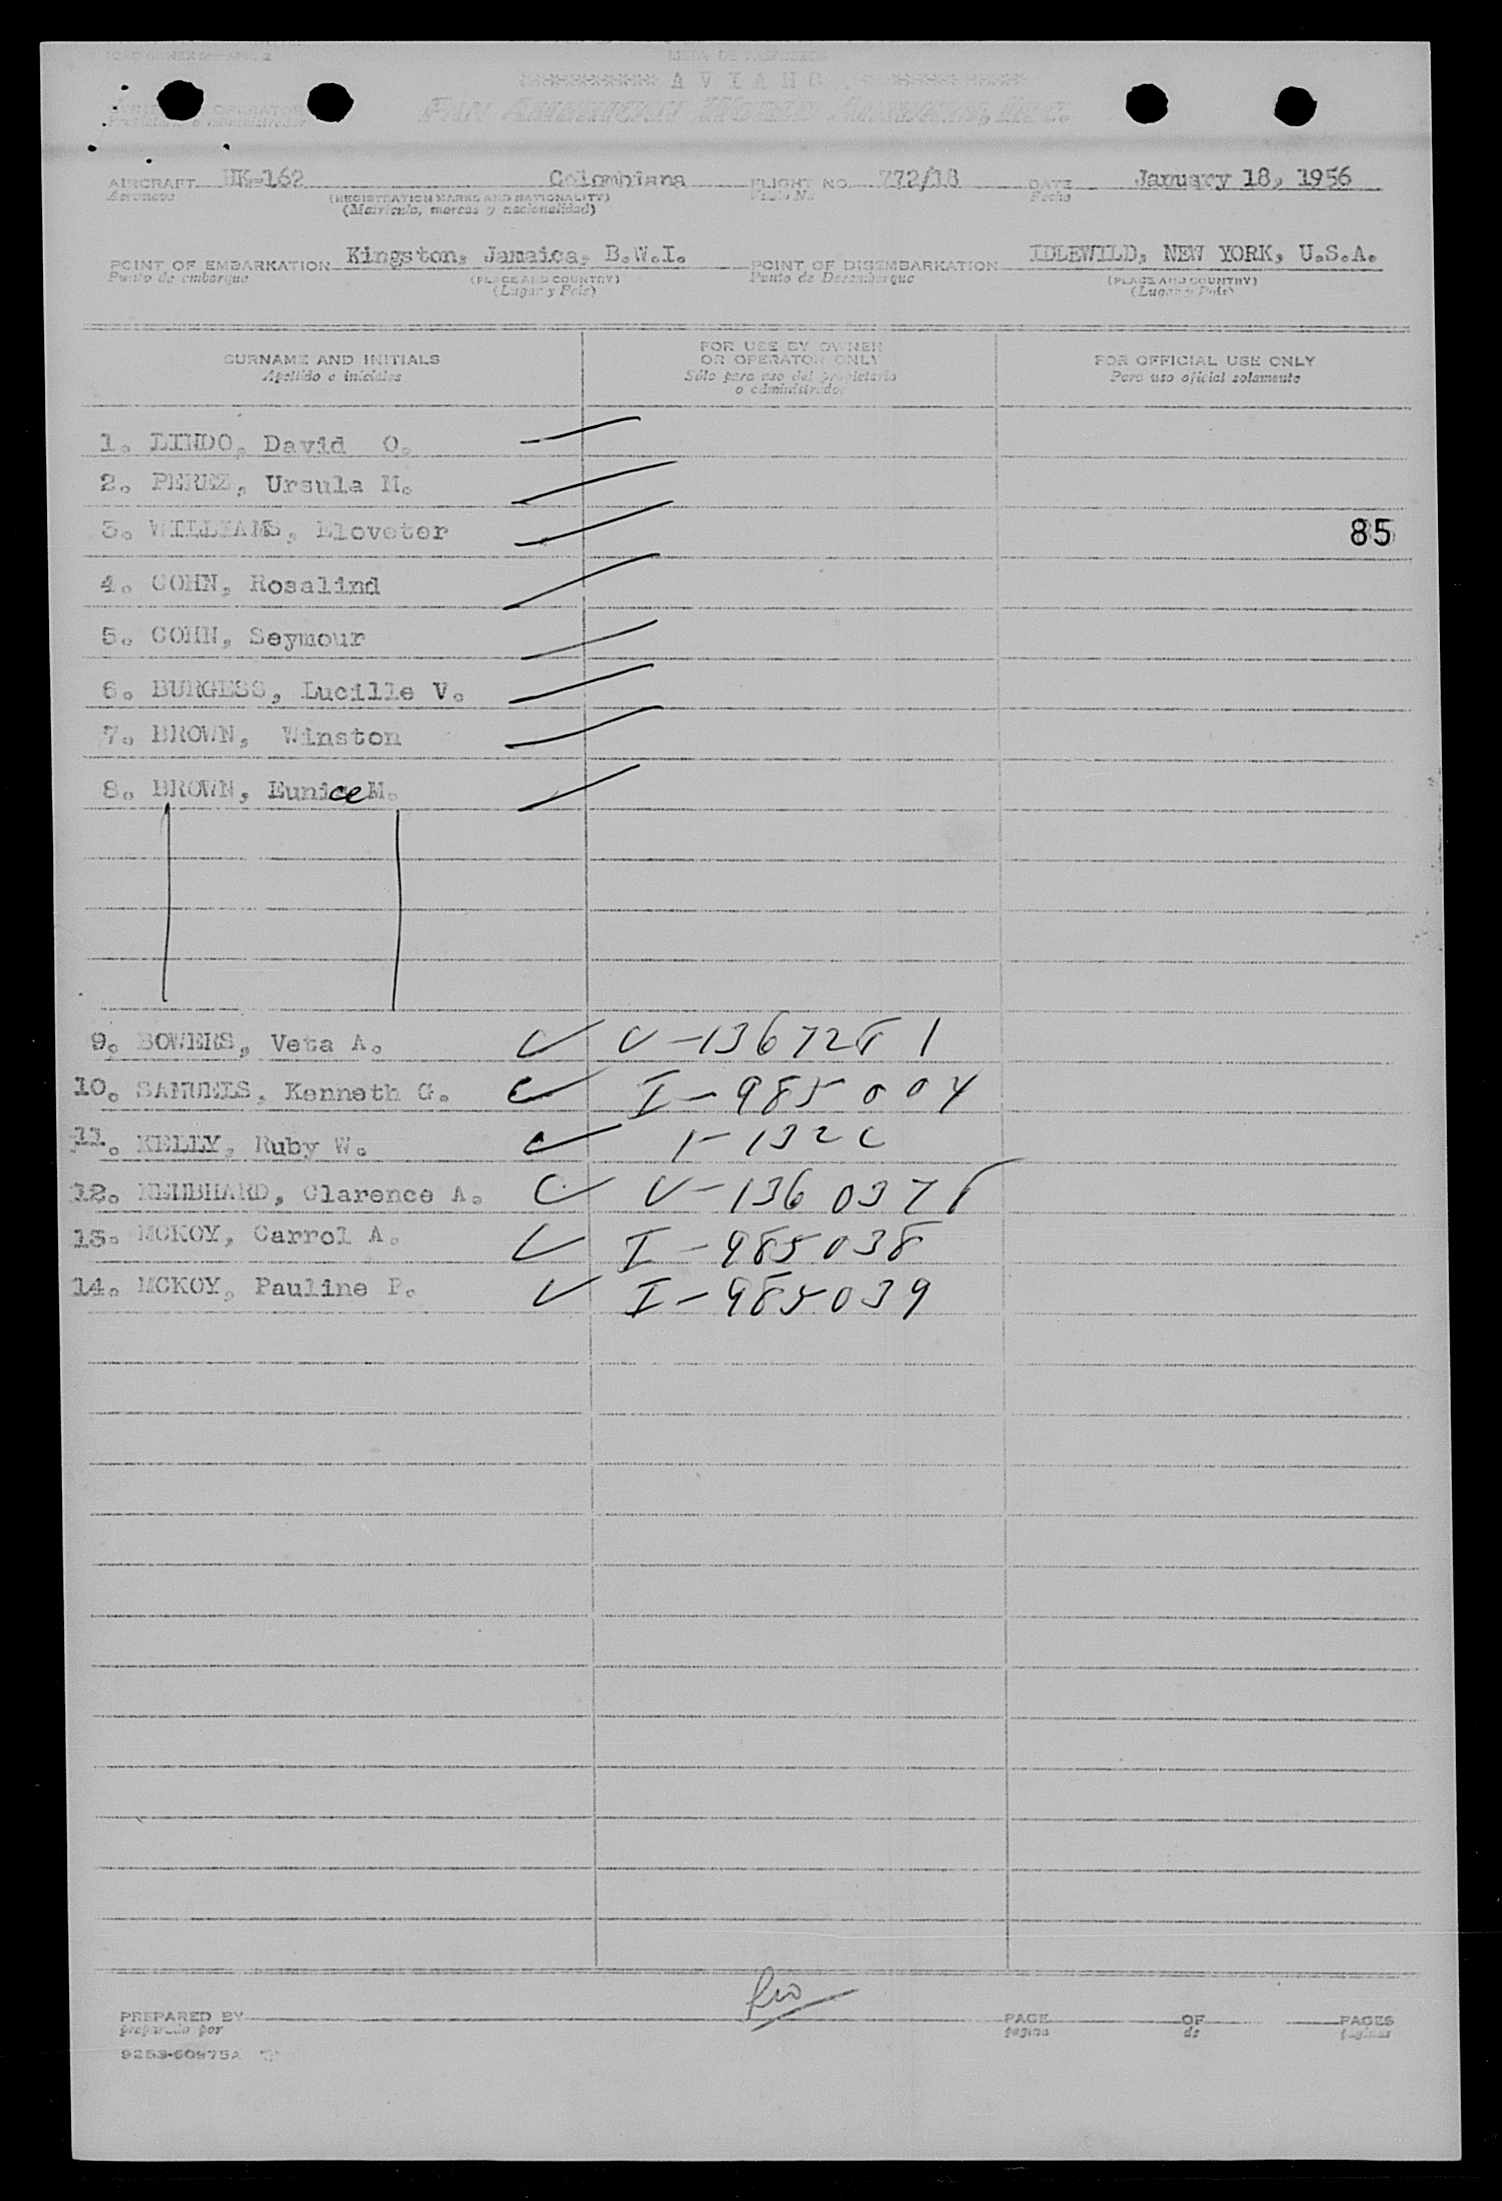 A V I A N C A
PAN AMERICAN WORLD AIRWAYS, INC.
AIRCRAFT HK-162 Colombiana FLIGHT NO. 772/18 DATE January 18, 1956
Aeronave (REGISTRATION MARKS AND NATIONALITY) Vuelo No Fecha
(Matrícula, marcas y nacionalidad)
POINT OF EMBARKATION Kingston, Jamaica, B.W.I. POINT OF DISEMBARKATION IDLEWILD, NEW YORK, U.S.A.
Punto de embarque (PLACE AND COUNTRY) Punto de Desembarque (PLACE AND COUNTRY)
(Lugar y País) (Lugar y País)
SURNAME AND INITIALS FOR USE BY OWNER OR OPERATOR ONLY FOR OFFICIAL USE ONLY
Apellido e iniciales Sólo para uso del propietario o administrador Para uso oficial solamente
1. LINDO, David O.
2. PEREZ, Ursula M.
3. WILLIAMS, Eloveter
85
4. COHN, Rosalind
5. COHN, Seymour
6. BURGESS, Lucille V.
7. BROWN, Winston
8. BROWN, Eunice M.
9. BOWERS, Veta A. V-1367281
10. SAMUELS, Kenneth G. I-985004
11. KELLY, Ruby W.
12. Clarence A. V-1360378
13. MCKOY, Carrol A. I-985038
14. MCKOY, Pauline P. I-985039
PREPARED BY PAGE OF PAGES
preparado por página de páginas